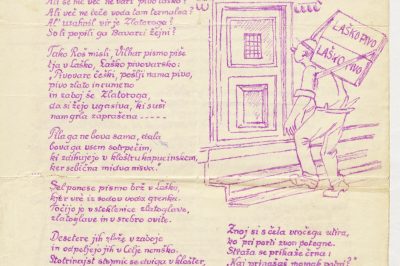 Ali še ne več ne vari pivo Laško?
Ali več ne teče voda tam termalna?
Al' usahnil vir je Zlatoroga?
So li popili ga Bavarci žejni?
Tako Roš misli, Vilhar pismo piše
tja v Laško, Laško pivovarsko:
"Pivovare češki, pošlji nama pivo,
pivo zlato in rumeno
in zaboj še Zlatoroga,
da si žejo ugasiva, ki suši
nam grla zaprašena - - - - -
Pila ga ne bova sama, dala
bova ga vsem sotrpečim,
ki zdihujejo v kloštru kapucinskem,
ker sebična midva nisva."
Sel ponese pismo brž v Laško,
kjer vrè iz sodov voda grenka.
Točijo jo v steklenice zlatoglave,
zlatoglave in v srebro ovite.
Desetere jih zlože v zaboje
in odpeljejo jih v Celje nemško.
Stotrinajst stopnic se dviga v klošter,
LAŠKO PIVO
LAŠKO PIVO
Znoj si s čela vročega utira,
ko pri porti zvon potegne.
Straža se prikaže črna:
"Kaj prinašaš, momak dobri?"